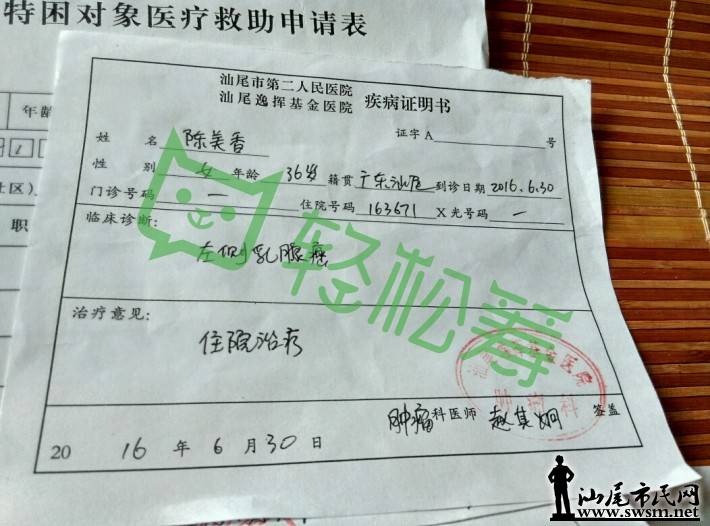 特困对象医疗救助申请表
年龄
社区)
职
汕尾市第二人民医院
汕尾逸挥基金医院 疾病证明书
证字A 号
姓 名 陈美香
性 别 女 年龄 36岁 籍贯 广东汕尾 到诊日期 2016.6.30
门诊号码 一 住院号码 163671 X光号码 一
临床诊断:
左侧乳腺癌
轻松筹
治疗意见:
住院治疗
基金医院
肿瘤科
肿瘤科医师 赵集 签盖
20 16 年 6 月 30 日
汕尾市民网
www.swsm.net